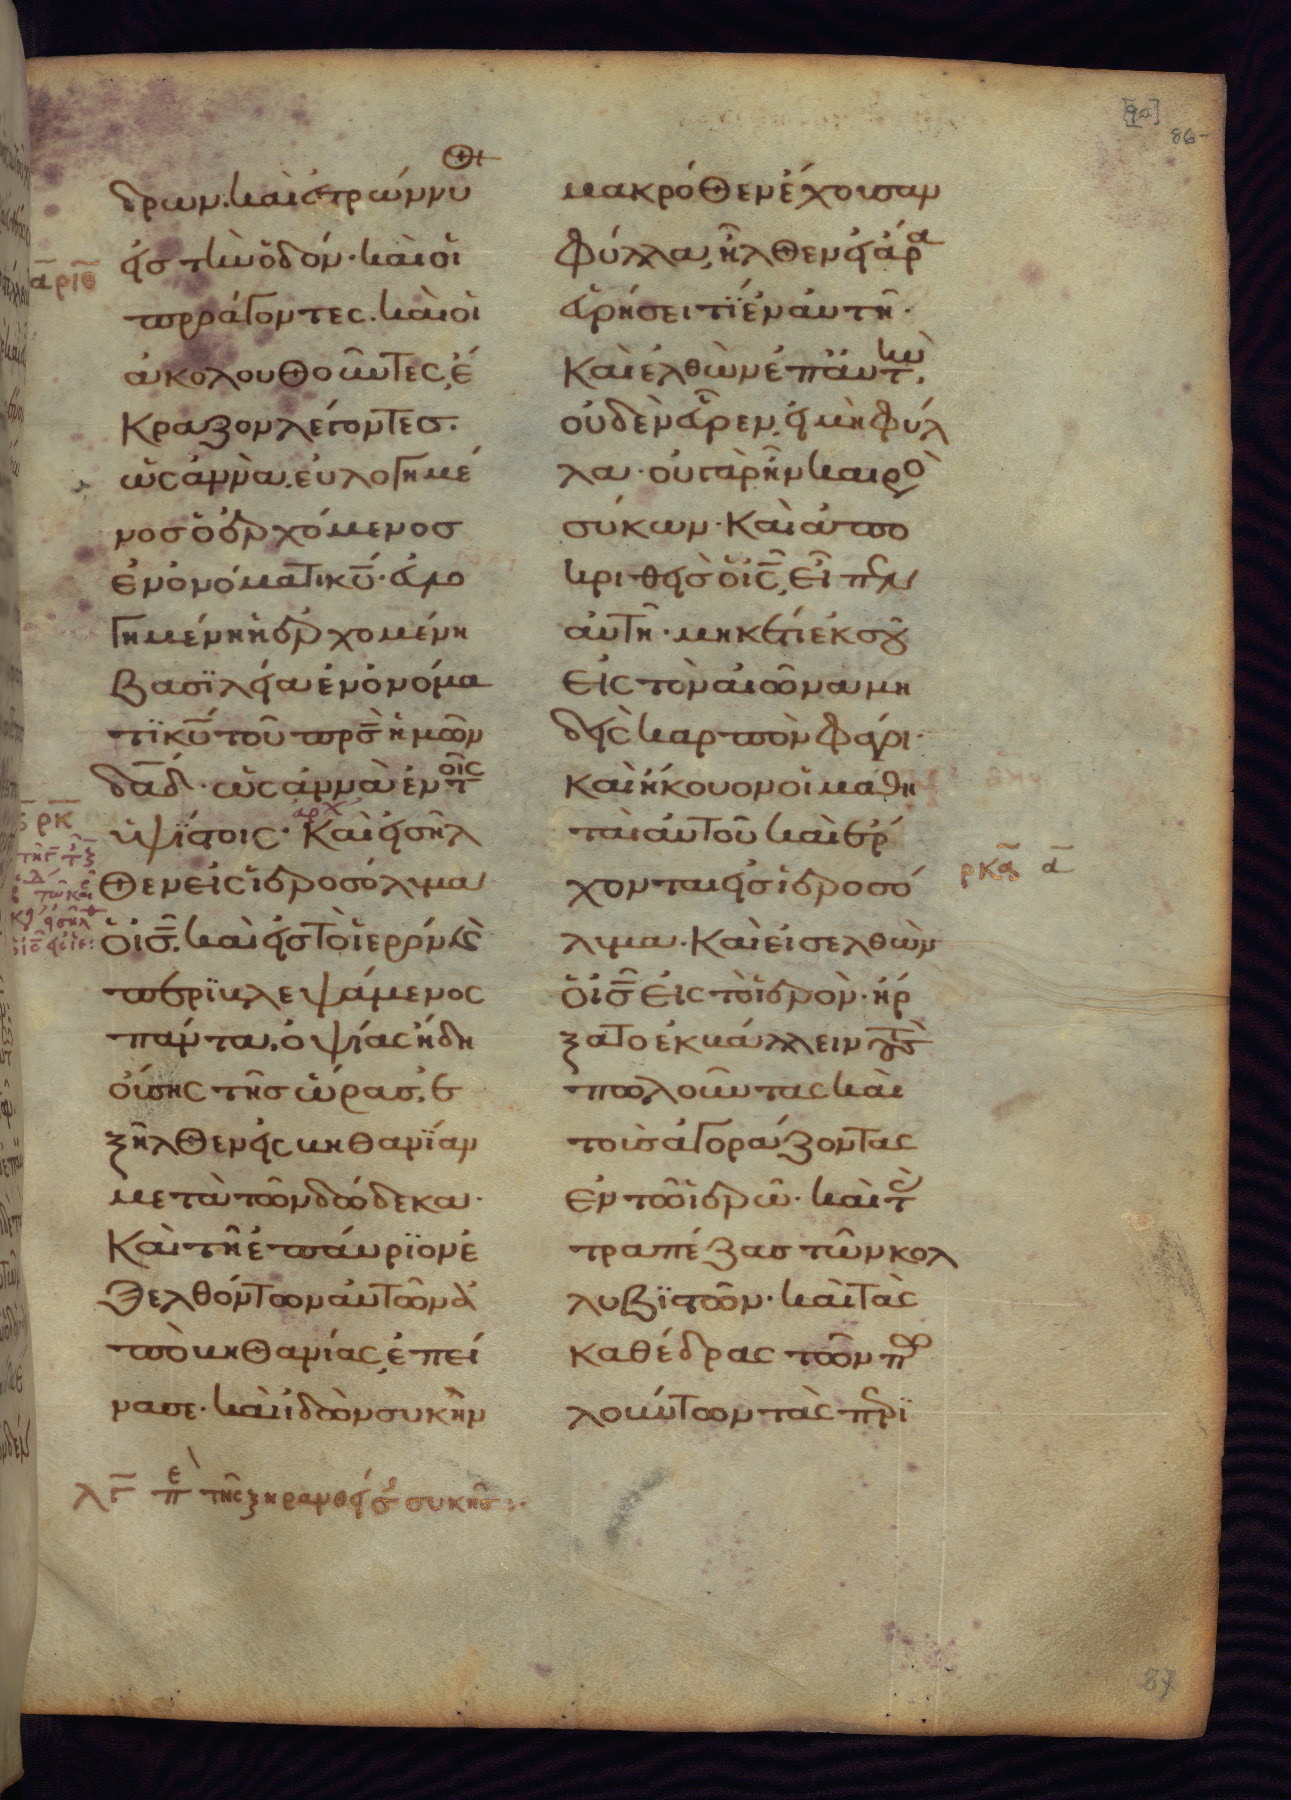 δρων. και εστρώννυ
εἰς τὴν ὁδόν. καὶ οἱ
προάγοντες. καὶ οἱ
ἀκολουθοῦντες, ἔ
κραζον λέγοντες.
ὡς ἀννὰ. εὐλογημέ
νος ὁ ἐρχόμενος
ἐν ὀνόματι κ̅υ̅. εὐλο
γημένη ἡ ἐρχομένη
βασιλεία ἐν ὀνόμα
τι κ̅υ̅ τοῦ π̅ρ̅ς̅ ἡμῶν
δ̅α̅δ̅. ὡς ἀννὰ ἐν τοῖς
ὑψίστοις. Καὶ εἰσῆλ
θεν εἰς ἱεροσόλυμα
ὁ ι̅ς̅. καὶ εἰς τὸ ἱερόν. καὶ
περιβλεψάμενος
πάντα, ὀψίας ἤδη
οὔσης τῆς ὥρας, ἐ
ξῆλθεν εἰς βηθανίαν
μετὰ τῶν δώδεκα.
Καὶ τῇ ἐπαύριον ἐ
ξελθόντων αὐτῶν ἀ
πὸ βηθανίας, ἐπεί
νασε. καὶ ἰδὼν συκῆν
μακρόθεν ἔχουσαν
φύλλα, ἦλθεν εἰ ἄρα
εὑρήσει τι ἐν αὐτῇ.
Καὶ ἐλθὼν ἐπ αὐτὴν,
οὐδὲν εὗρεν, εἰ μὴ φύλ
λα. οὐ γὰρ ἦν καιρὸ
σύκων. Καὶ ἀπο
κριθεὶς ὁ ι̅ς̅, εἶπεν
αὐτῇ. μηκέτι ἐκ σοῦ
εἰς τὸν αἰῶνα μη
δεὶς καρπὸν φάγοι.
Καὶ ἤκουον οἱ μαθη
ταὶ αὐτοῦ καὶ ἔρ
χονται εἰς ἱεροσό
λυμα. Καὶ εἰσελθὼν
ὁ ι̅ς̅ εἰς τὸ ἱερὸν. ἤρ
ξατο ἐκβάλλειν τοὺς
πωλοῦντας καὶ
τοὺς ἀγοράζοντας
ἐν τῷ ἱερῷ. καὶ τὰς
τραπέζας τῶν κολ
λυβιστῶν. καὶ τὰς
καθέδρας τῶν πω
λούντων τὰς περι
λ̅γ̅ περὶ τῆς ξηρανθείσης συκῆς
ρκα α
86
87